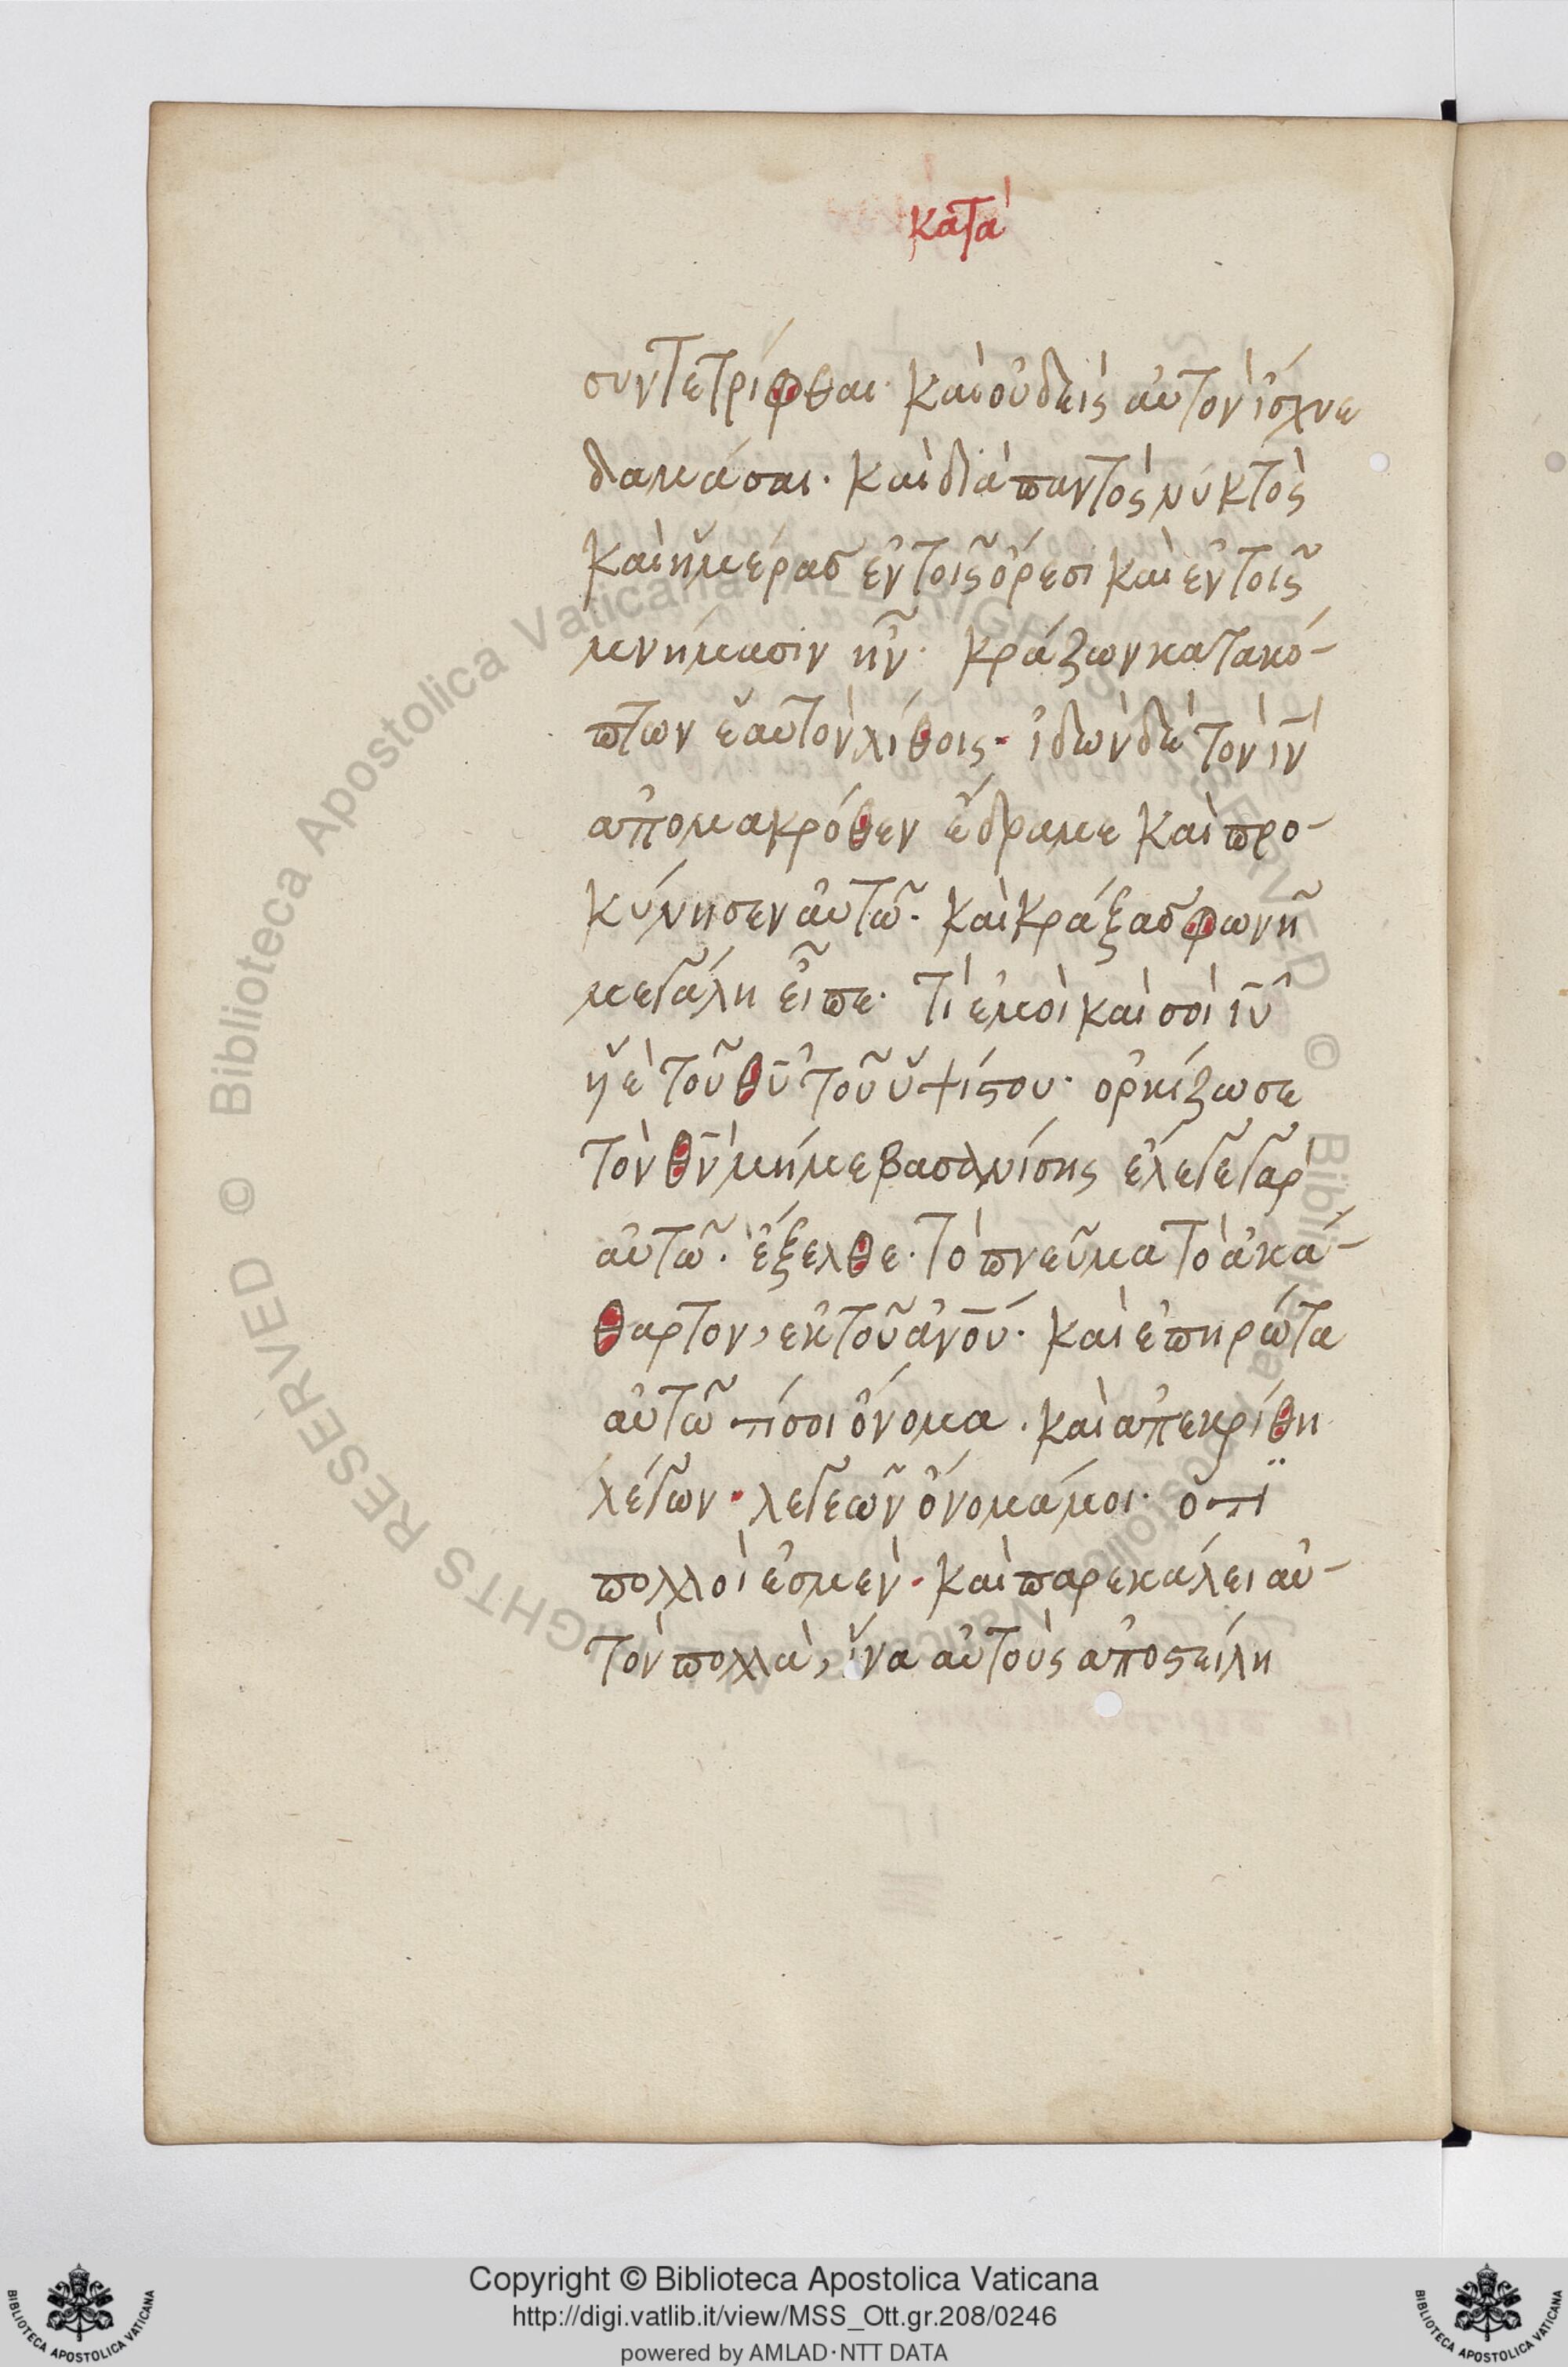 κατὰ
συντετρίφθαι· καὶ οὐδεὶς αὐτὸν ἴσχυε
δαμάσαι· καὶ διὰ παντὸς νυκτὸς
καὶ ἡμέρας ἐν τοῖς ὄρεσι καὶ ἐν τοῖς
μνήμασιν ἦν· κράζων κατακό-
πτων ἑαυτὸν λίθοις· ἰδὼν δὲ τὸν ιν̅
ἀπομακρόθεν ἔδραμε καὶ προ-
κύνησεν αὐτῶ· καὶ κράξας φωνῆ
μεγάλη εἶπε· τί ἐμοὶ καὶ σοὶ ιυ̅
ὑὲ τοῦ θυ̅ τοῦ ὑψίϛου· ὁρκίζω σε
τὸν θν̅ μή με βασανίσης ἔλεγε γὰρ
αὐτῶ· ἔξελθε· τὸ πνεῦμα τὸ ἀκά-
θαρτον, ἐκ τοῦ ἀνο̅υ· καὶ ἐπηρώτα
αὐτῶ τί σοι ὄνομα· καὶ ἀπεκρίθη
λέγων· λεγεῶν ὄνομά μοι· ὅτϊ
πολλοὶ ἐσμεν· καὶ παρεκάλει αὐ-
τὸν πολλὰ, ἵνα αὐτοὺς ἀποϛείλη
Copyright © Biblioteca Apostolica Vaticana
http://digi.vatlib.it/view/MSS_Ott.gr.208/0246
powered by AMLAD·NTT DATA
BIBLIOTECA APOSTOLICA VATICANA
BIBLIOTECA APOSTOLICA VATICANA
© Biblioteca Apostolica Vaticana ALL RIGHTS RESERVED © Biblioteca Apostolica Vaticana ALL RIGHTS RESERVED